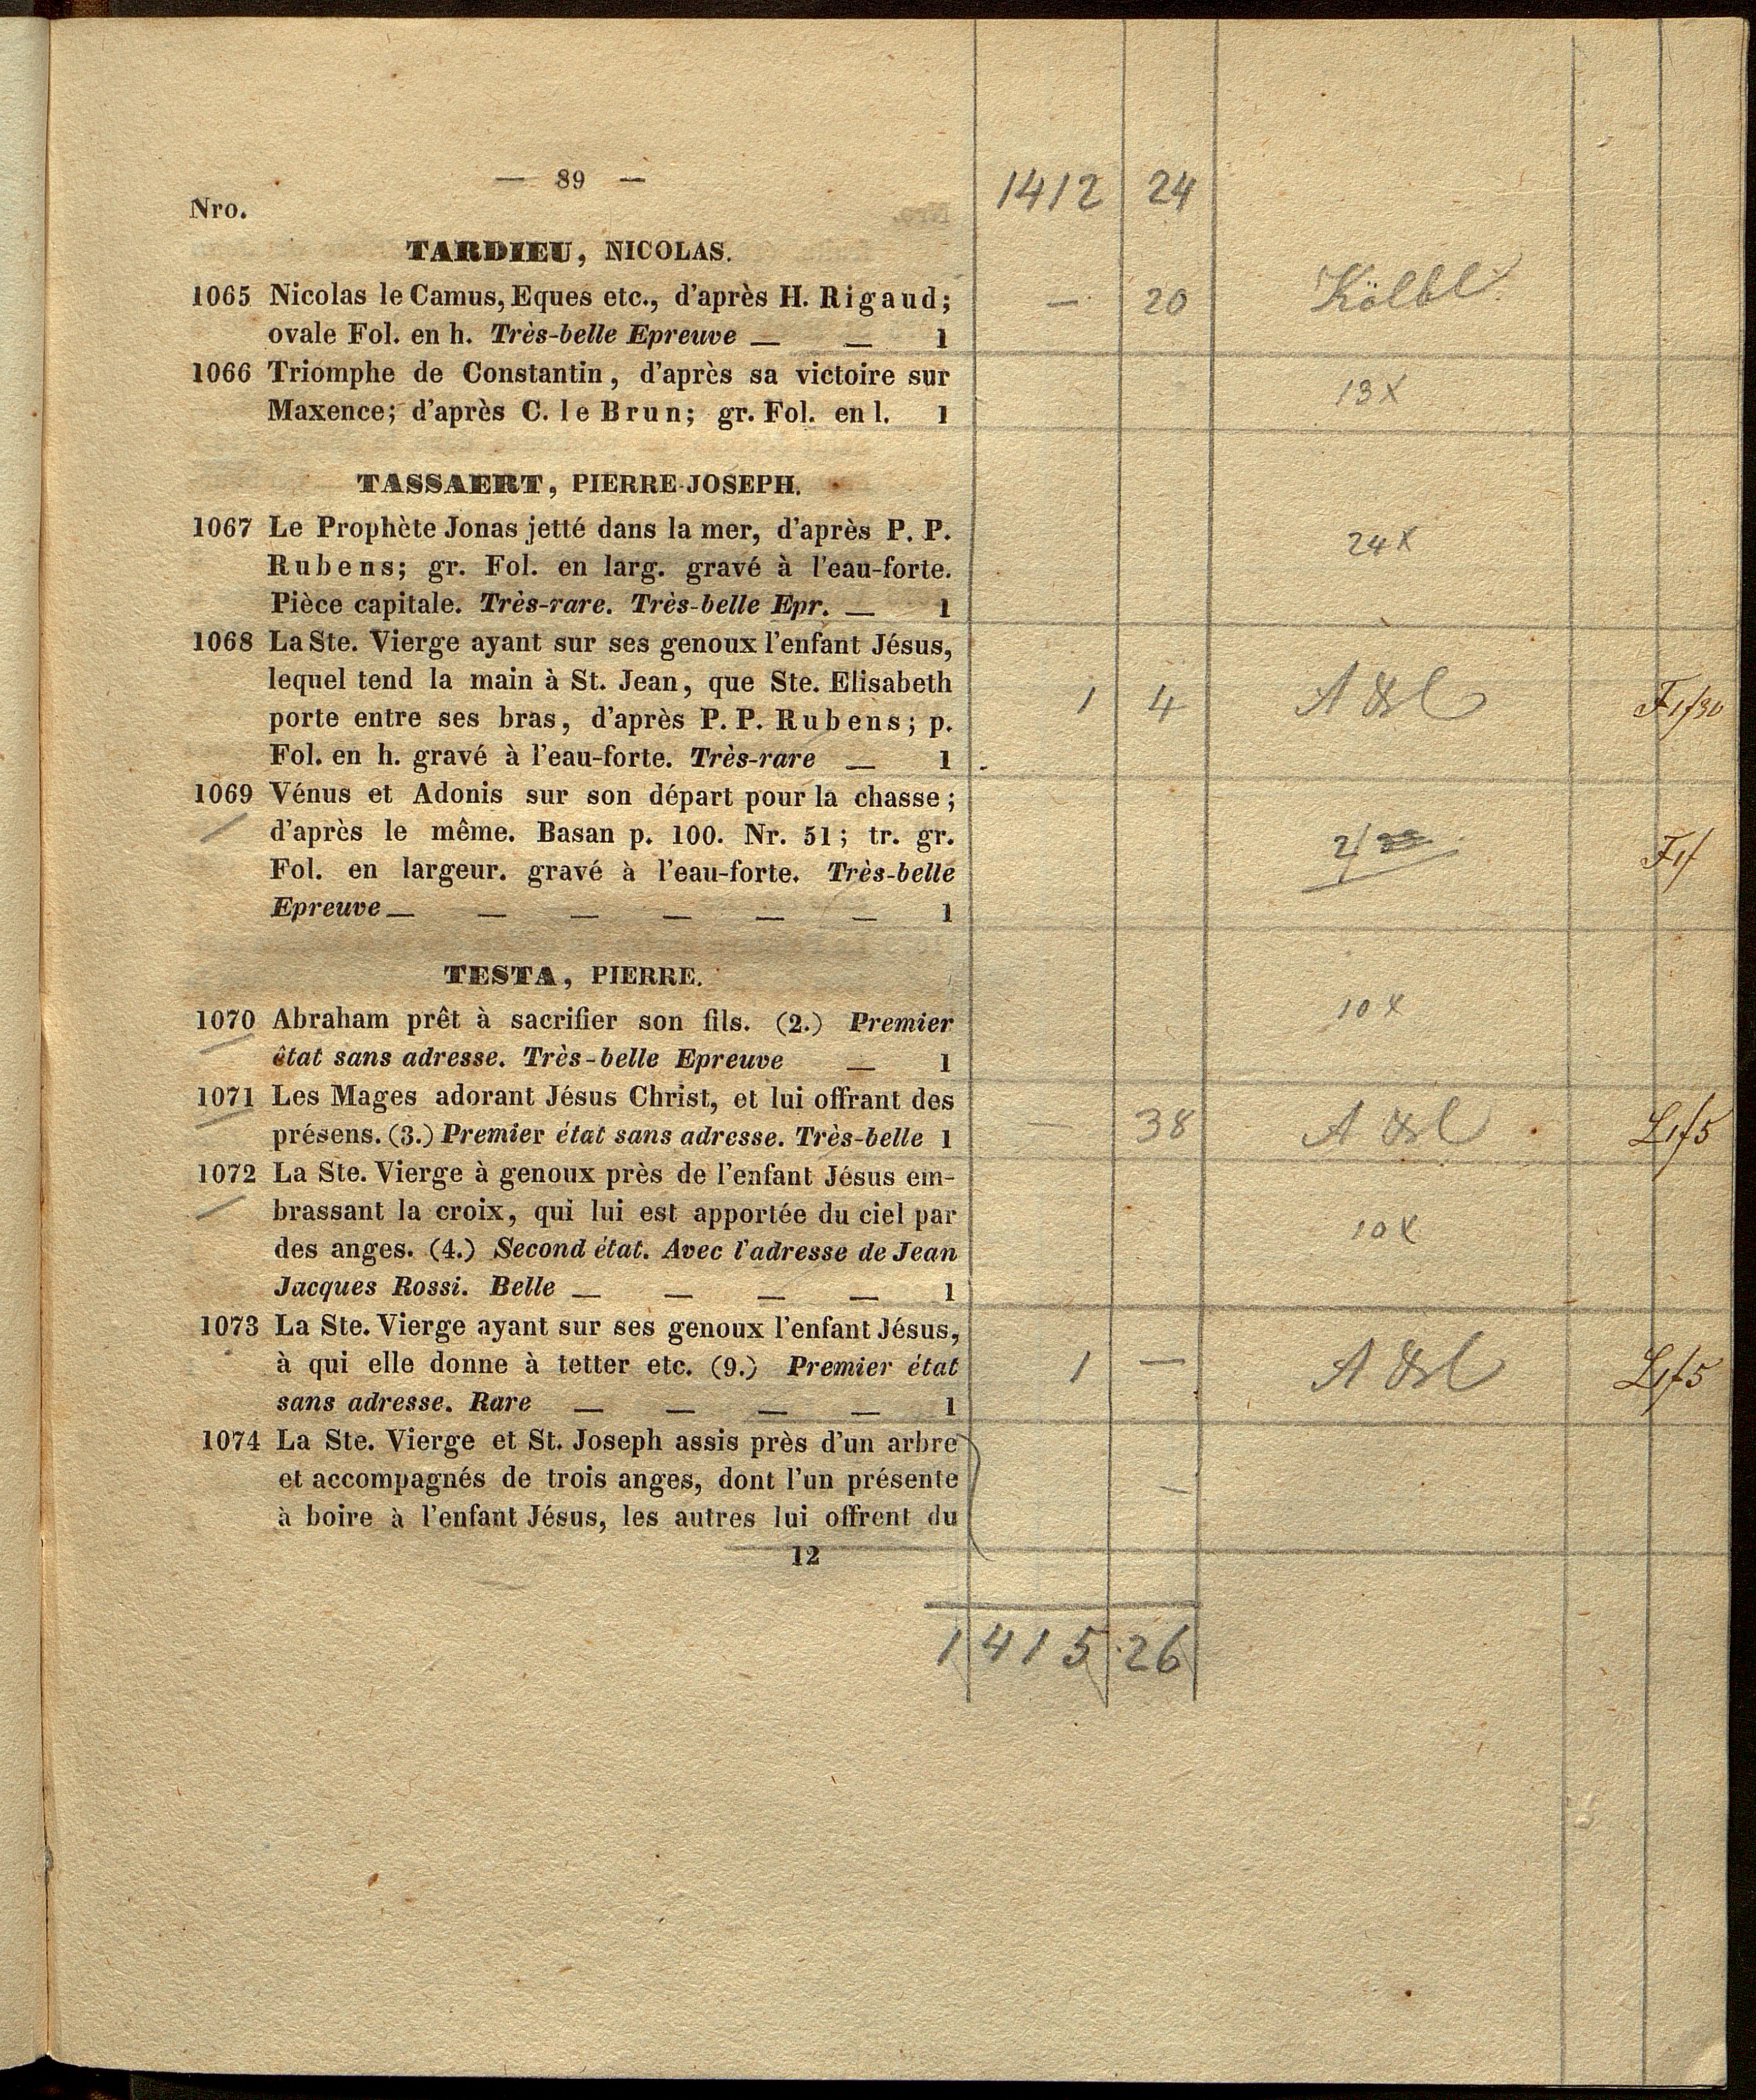 — 89 —
1412 24
Nro.
TARDIEU, NICOLAS.
1065 Nicolas le Camus, Eques etc., d'après H. Rigaud;
— 20 Kölbl
ovale Fol. en h. Très-belle Epreuve — — 1
1066 Triomphe de Constantin, d'après sa victoire sur
13 x
Maxence; d'après C. le Brun; gr. Fol. en l. 1
TASSAERT, PIERRE-JOSEPH.
1067 Le Prophète Jonas jetté dans la mer, d'après P. P.
24 x
Rubens; gr. Fol. en larg. gravé à l'eau-forte.
Pièce capitale. Très-rare. Très-belle Epr. — 1
1068 La Ste. Vierge ayant sur ses genoux l'enfant Jésus,
lequel tend la main à St. Jean, que Ste. Elisabeth
1 4 F1f30
porte entre ses bras, d'après P. P. Rubens; p.
Fol. en h. gravé à l'eau-forte. Très-rare — 1
1069 Vénus et Adonis sur son départ pour la chasse;
d'après le même. Basan p. 100. Nr. 51; tr. gr.
F1f
Fol. en largeur. gravé à l'eau-forte. Très-belle
Epreuve — — — — — — 1
TESTA, PIERRE.
1070 Abraham prêt à sacrifier son fils. (2.) Premier
10 x
êtat sans adresse. Très-belle Epreuve — 1
1071 Les Mages adorant Jésus Christ, et lui offrant des
— 38 L1f5
présens. (3.) Premier état sans adresse. Très-belle 1
1072 La Ste. Vierge à genoux près de l'enfant Jésus em-
brassant la croix, qui lui est apportée du ciel par
10 x
des anges. (4.) Second état. Avec l'adresse de Jean
Jacques Rossi. Belle — — — — 1
1073 La Ste. Vierge ayant sur ses genoux l'enfant Jésus,
à qui elle donne à tetter etc. (9.) Premier état
1 — L1f5
sans adresse. Rare — — — — 1
1074 La Ste. Vierge et St. Joseph assis près d'un arbre
et accompagnés de trois anges, dont l'un présente
—
à boire à l'enfant Jésus, les autres lui offrent du
12
1415 26